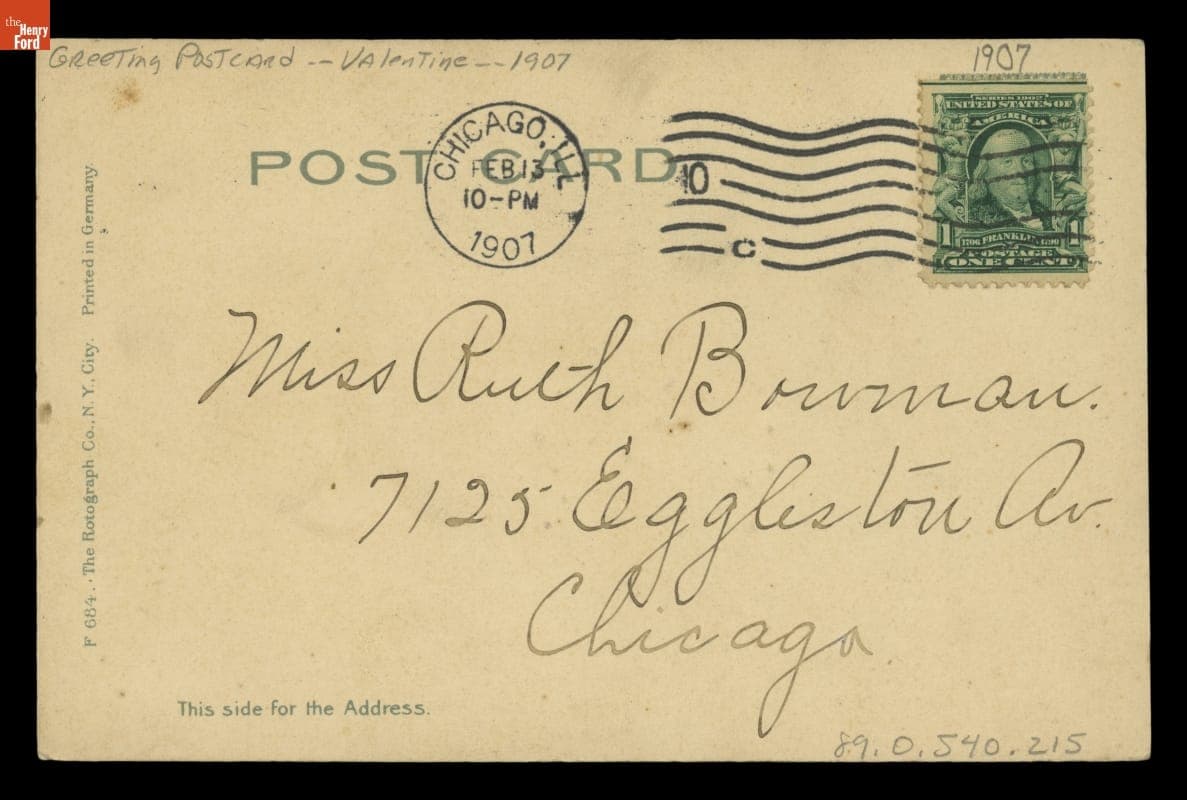 the
Henry
Ford
Greeting Postcard -- Valentine -- 1907
1907
POST CARD
CHICAGO, ILL.
FEB 13
10-PM
1907
10
C
SERIES 1902
UNITED STATES OF
AMERICA
1 1706 FRANKLIN 1790 1
POSTAGE
ONE CENT
Miss Ruth Bowman.
7125 Eggleston Av.
Chicago
F 684. . The Rotograph Co., N.Y., City. Printed in Germany
This side for the Address.
89.0.540.215